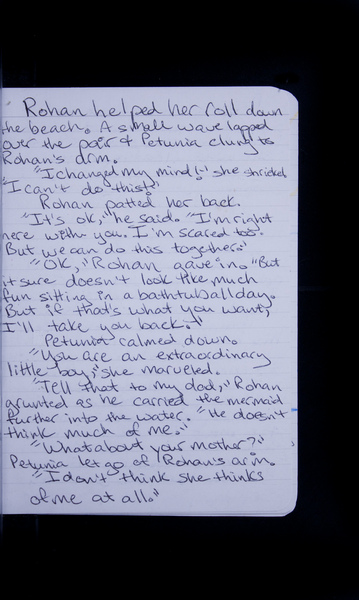 Rohan helped her roll down
the beach. A small wave lapped
over the pair & Petunia clung to
Rohan's arm.
"I changed my mind!" she shrieked
"I can't do this!"
Rohan patted her back.
"It's ok," he said. "I'm right
here with you. I'm scared too.
But we can do this together."
"OK," Rohan gave in. "But
it sure doesn't look like much
fun sitting in a bathtub all day.
But if that's what you want,
I'll take you back."
Petunia calmed down.
"You are an extraordinary
little boy," she marveled.
"Tell that to my dad," Rohan
grunted as he carried the mermaid
further into the water. "He doesn't
think much of me."
"What about your mother?"
Petunia let go of Rohan's arm.
"I don't think she thinks
of me at all."